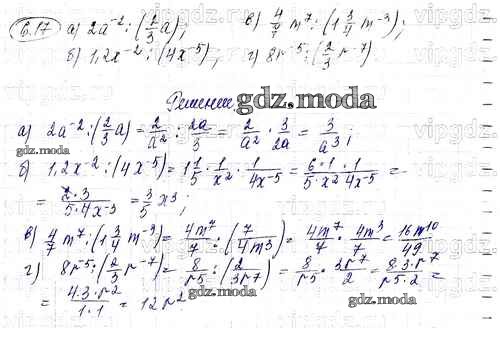 6.17 а) 2a⁻² : (2/3 a); в) 4/7 m⁷ : (1 3/4 m⁻³);
б) 1,2x⁻² : (4x⁻⁵); г) 8r⁻⁵ : (2/3 r⁻⁷).
Решение
gdz.moda
а) 2a⁻² : (2/3 a) = 2/a² : 2a/3 = 2/a² · 3/2a = 3/a³;
б) 1,2x⁻² : (4x⁻⁵) = 1 1/5 · 1/x² · 1/4x⁻⁵ = 6·1·1/5·x²·4x⁻⁵ =
= 2·3/5·4x⁻³ = 3/5 x³;
gdz.moda
в) 4/7 m⁷ : (1 3/4 m⁻³) = 4m⁷/7 : (7/4m³) = 4m⁷/7 · 4m³/7 = 16m¹⁰/49
г) 8r⁻⁵ : (2/3 r⁻⁷) = 8/r⁵ : (2/3r⁷) = 8/r⁵ · 3r⁷/2 = 8·3·r⁷/r⁵·2 =
= 4·3·r²/1·1 = 12r²
gdz.moda
gdz.moda